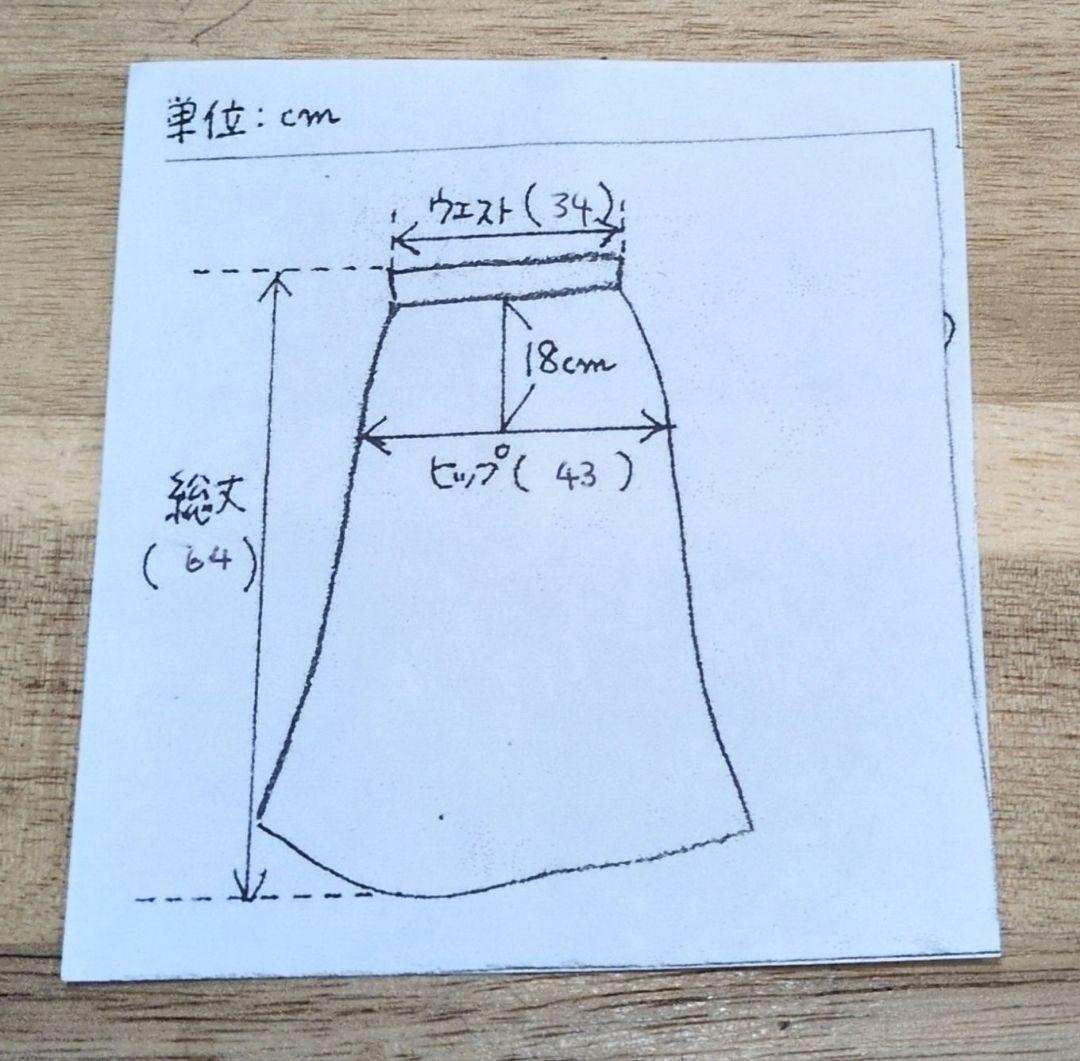 単位：cm
ウエスト(34)
18cm
ヒップ(43)
総丈
(64)